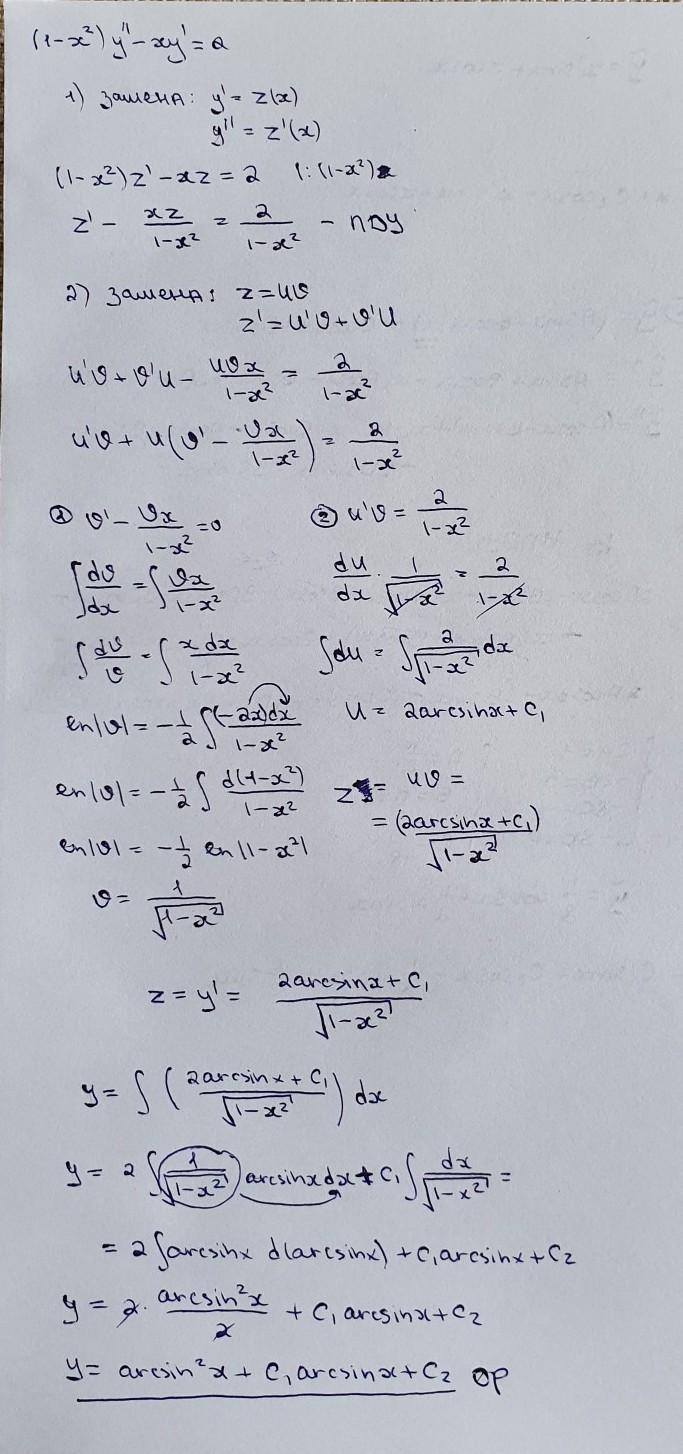 (1-x²) y'' - xy' = 2
1) замена: y' = z(x)
y'' = z'(x)
(1-x²)z' - xz = 2 |:(1-x²)
z' - xz/(1-x²) = 2/(1-x²) - ЛДУ
2) замена: z = uv
z' = u'v + v'u
u'v + v'u - uvx/(1-x²) = 2/(1-x²)
u'v + u(v' - vx/(1-x²)) = 2/(1-x²)
① v' - vx/(1-x²) = 0
∫ dv/dx = ∫ vx/(1-x²)
∫ dv/v = ∫ x dx/(1-x²)
ln|v| = -1/2 ∫ (-2x)dx/(1-x²)
ln|v| = -1/2 ∫ d(1-x²)/(1-x²)
ln|v| = -1/2 ln|1-x²|
v = 1/√(1-x²)
② u'v = 2/(1-x²)
du/dx · 1/√(1-x²) = 2/(1-x²)
∫du = ∫ 2/√(1-x²) dx
u = 2arcsinx + C₁
z = uv =
= (2arcsinx + C₁)/√(1-x²)
z = y' = (2arcsinx + C₁)/√(1-x²)
y = ∫ ((2arcsinx + C₁)/√(1-x²)) dx
y = 2 ∫ (1/√(1-x²)) arcsinx dx + C₁ ∫ dx/√(1-x²) =
= 2 ∫arcsinx d(arcsinx) + C₁arcsinx + C₂
y = 2 · arcsin²x/2 + C₁ arcsinx + C₂
y = arcsin²x + C₁ arcsinx + C₂ ОР